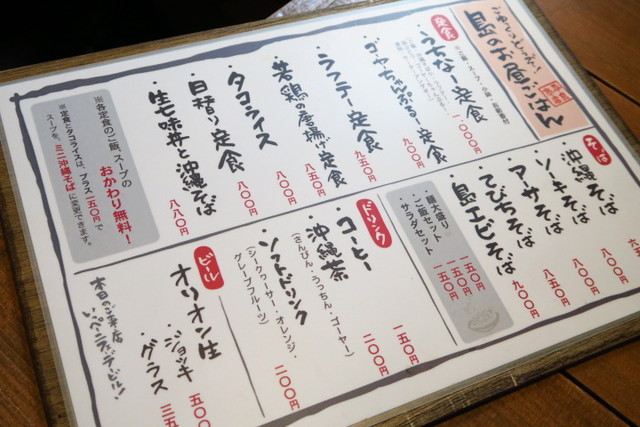 ごゆっくりどうぞ!
島のお昼ごはん
定食
・うちなー定食
一、〇〇〇円
・ゴーヤちゃんぷるー定食
九〇〇円
・ラフテー定食
九五〇円
・若鶏の唐揚げ定食
八五〇円
・タコライス
八〇〇円
・日替り定食
八〇〇円
・生七味丼と沖縄そば
八八〇円
※各定食のご飯、スープの
おかわり無料!
※定食とタコライスは、プラス一五〇円で
スープを、ミニ沖縄そばに変更できます。
そば
・沖縄そば
・ソーキそば
八五〇円
・アーサそば
・てびちそば
八五〇円
・島エビそば
九〇〇円
麺大盛り
一五〇円
ご飯セット
一五〇円
サラダセット
一五〇円
ドリンク
・コーヒー
一五〇円
・沖縄茶
(さんぴん・うっちん・ゴーヤー)
二〇〇円
・ソフトドリンク
(シークヮーサー・オレンジ・
グレープフルーツ)
二〇〇円
ビール
オリオン生
・ジョッキ
五〇〇円
・グラス
三五
本日のご来店
いっぺーにふぇーでーびる!